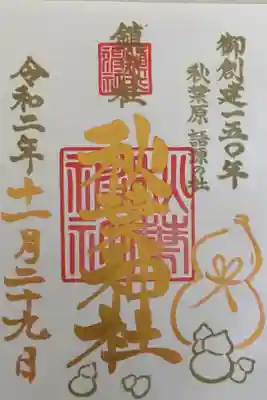 御創建一五〇年
秋葉原 語源の社
鎮火社
秋葉神社
令和二年十一月二十九日
秋葉神社